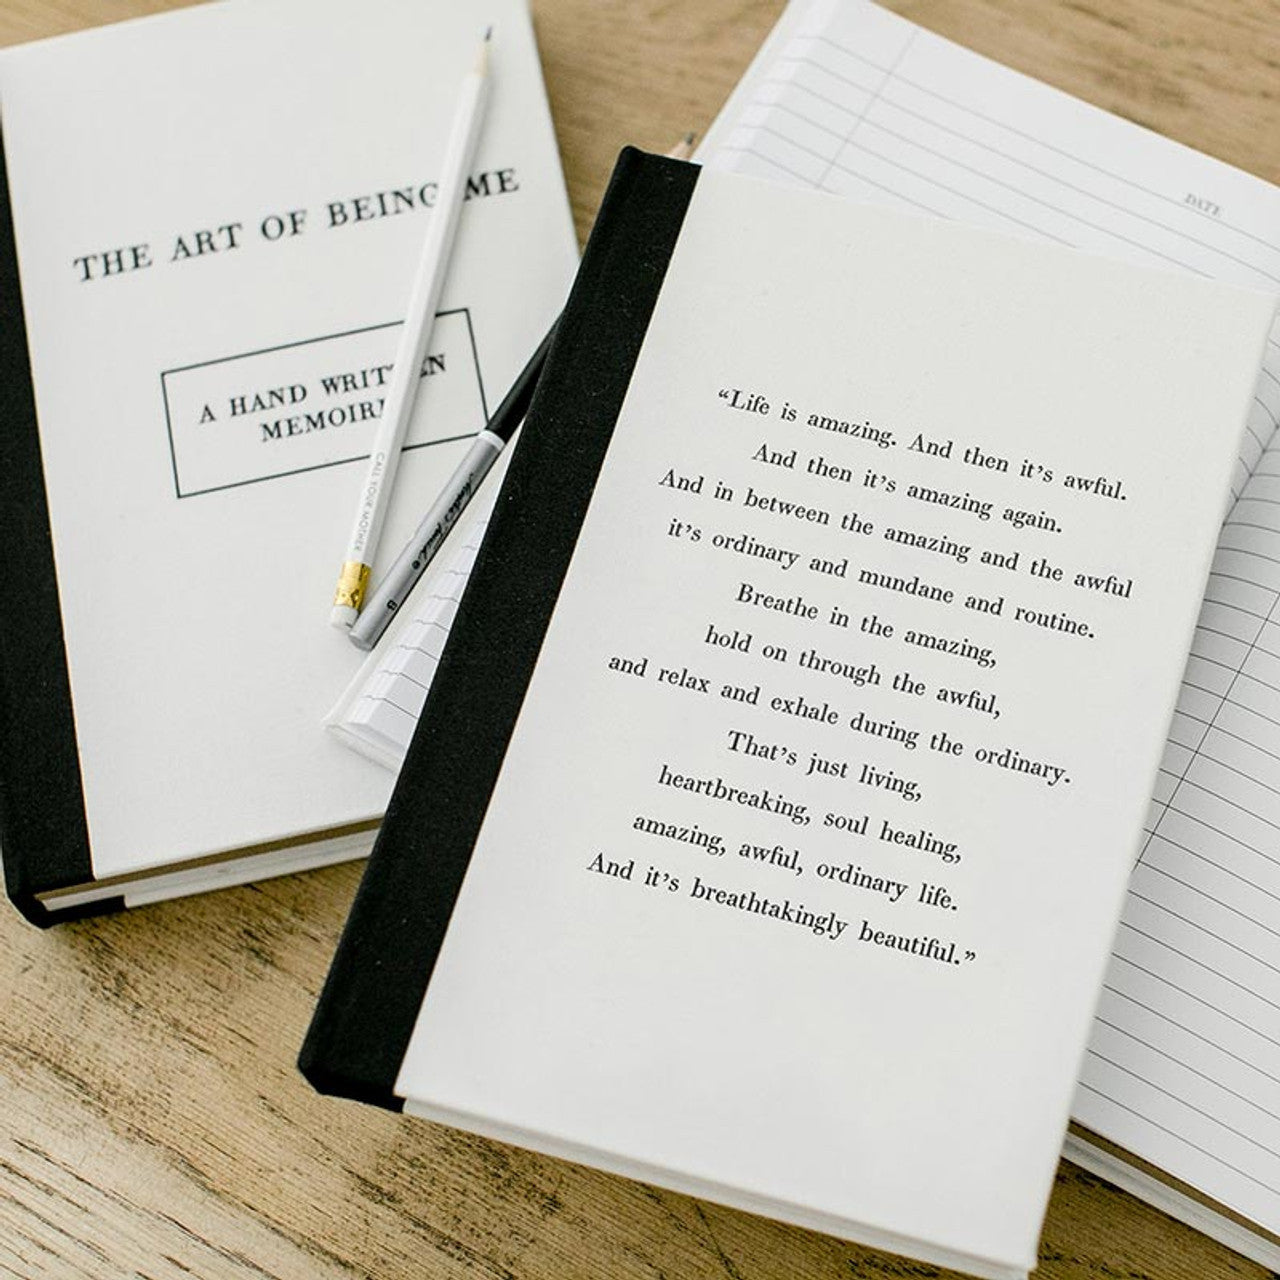 THE ART OF BEING ME
A HAND WRITTEN
MEMOIR
CALL YOUR MOTHER
DATE
“Life is amazing. And then it’s awful.
And then it’s amazing again.
And in between the amazing and the awful
it’s ordinary and mundane and routine.
Breathe in the amazing,
hold on through the awful,
and relax and exhale during the ordinary.
That’s just living,
heartbreaking, soul healing,
amazing, awful, ordinary life.
And it’s breathtakingly beautiful.”